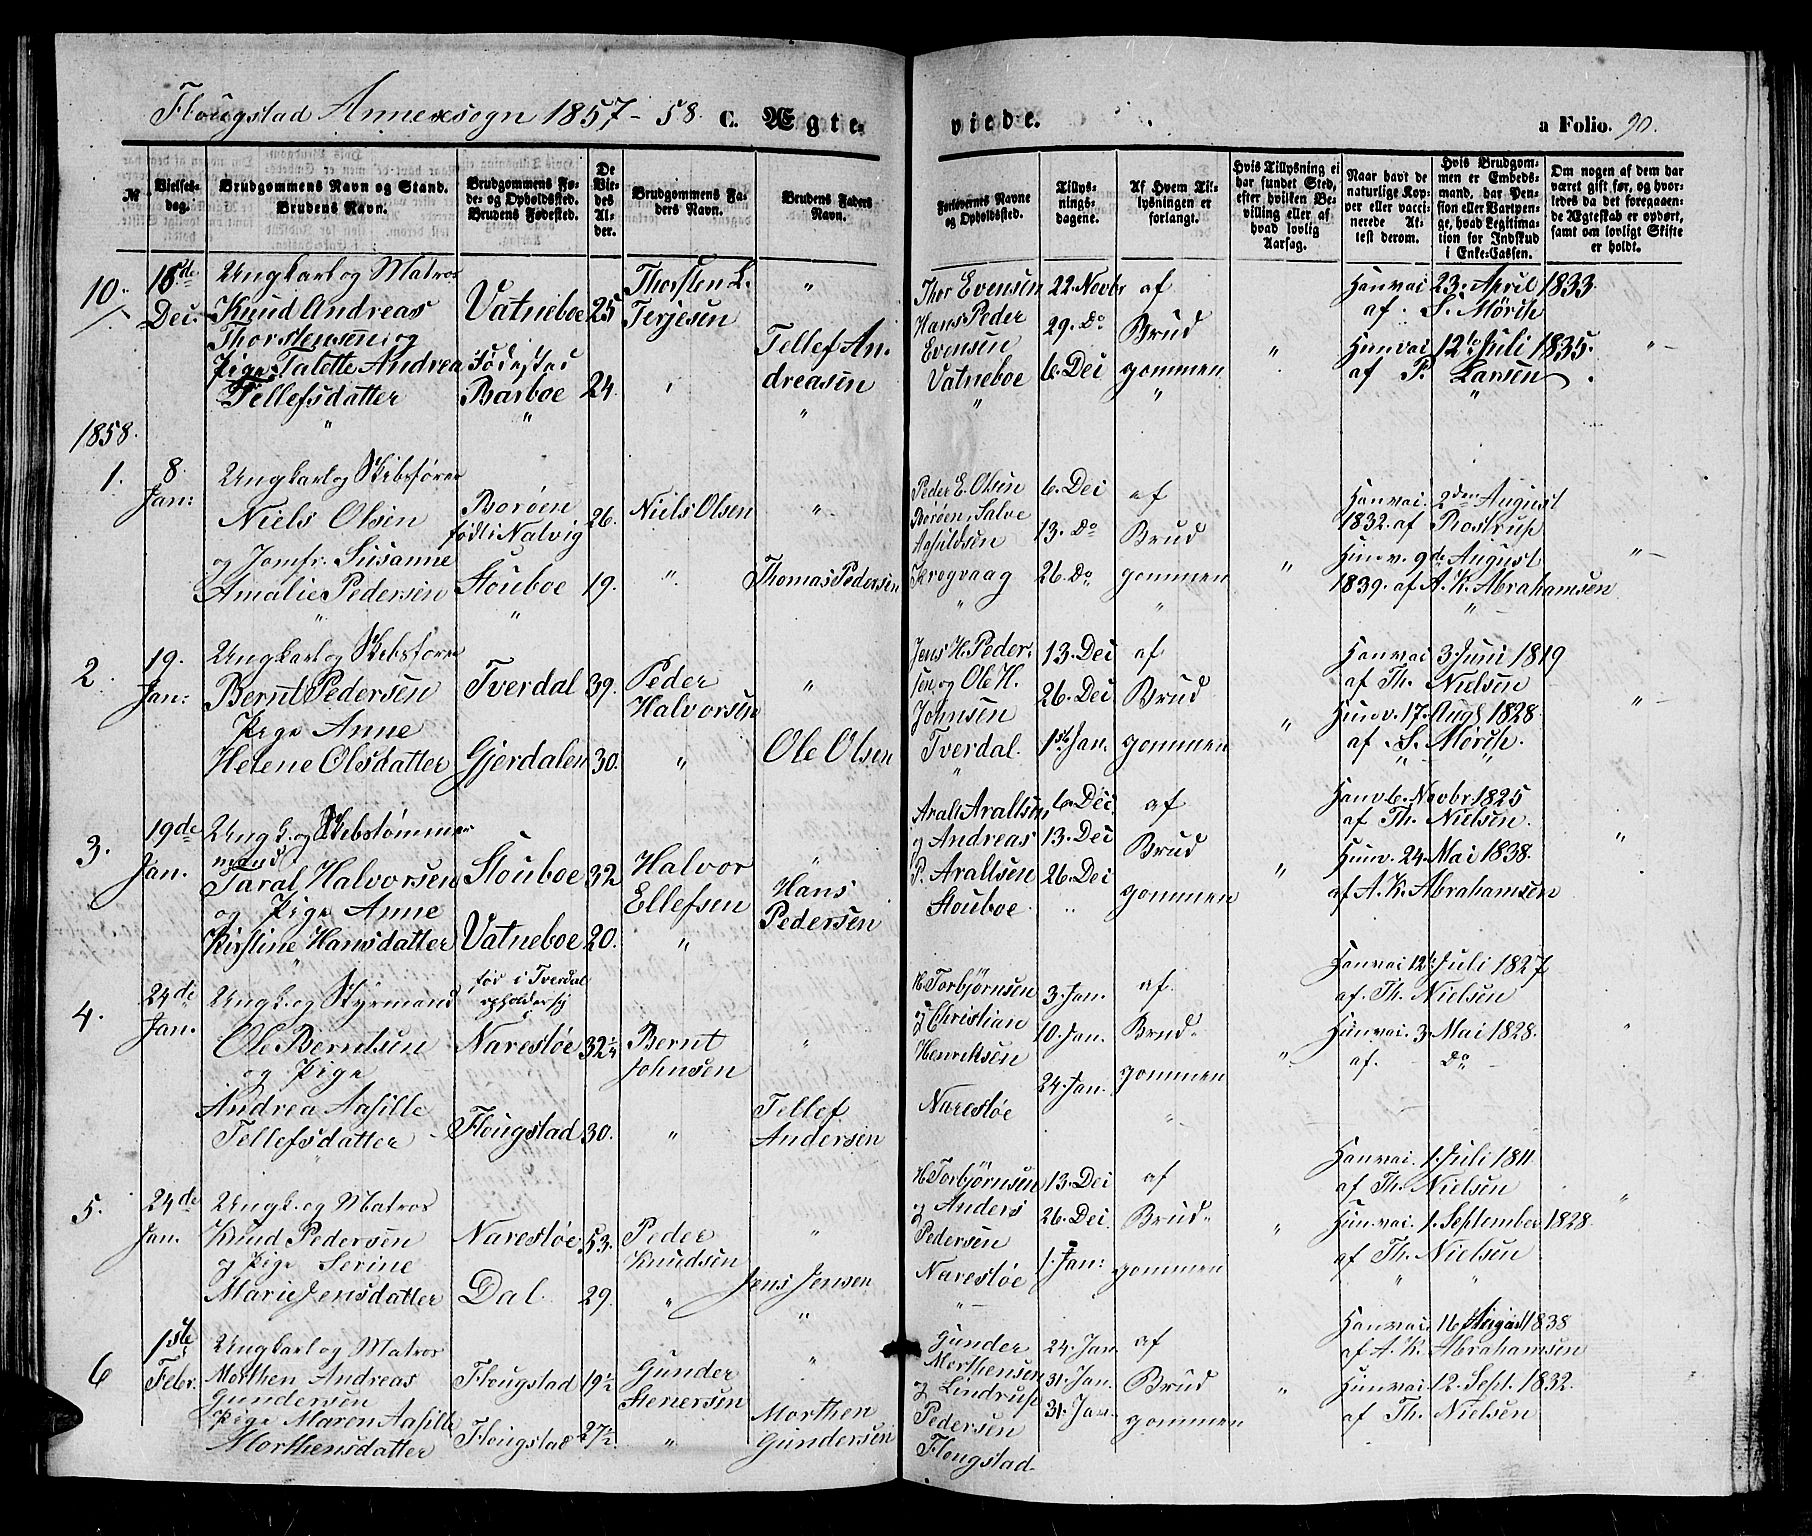 Flougstad Annexsogn 1857-58. C. Ægte-
viede.
a Folio. 90.
№
Vielses-
dag.
Brudgommens Navn og Stand.
Brudens Navn.
Brudgommens Fø-
de- og Opholdssted.
Brudens Fødested.
De
Vie-
des
Al-
der.
Brudgommens Fa-
ders Navn.
Brudens Faders
Navn.
Forlovernes Navne
og Opholdssted.
Tillys-
nings-
dagene.
Af Hvem Til-
lysningen er
forlangt.
Hvis Tillysning ei
har fundet Sted,
efter hvilken Be-
villing eller af
hvad lovlig
Aarsag.
Naar havt de
naturlige Kop-
per eller vacci-
nerede At-
test derom.
Hvis Brudgom-
men er Embeds-
mand, har Pen-
sion eller Vartpen-
ge, hvad Legitima-
tion for Indskud
i Enke-Cassen.
Om nogen af dem har
været gift før, og hvor-
ledes da det foregaaen-
de Ægteskab er ophørt,
samt om lovligt Skifte
er holdt.
10.
16de
Dec.
Ungkarl og Matros
Knud Andreas
Thorstensen og
Pige Talette Andrea
Tellefsdatter
Vatneboe
Fødested
Barboe
25
24.
Thorsten L.
Terjesen
"
Tellef An-
dreasen
Thor Evensen
Hans Peder
Evensen
Vatneboe
22 Novbr
29. Do
6. Dec
af
Brud
gommen
"
Han vac. 23. April 1833.
af S. Mørch
Hun vac. 12te Juli 1835.
af P. Larsen
1858.
1.
8.
Jan:
Ungkarl og Skibsfører
Niels Olsen
og Jomfr. Susanne
Amalie Pedersen
Borøen
født i Nalvig
Stouboe
26.
19.
Niels Olsen
"
Thomas Pedersen
Peder E. Olsen
Borøen, Salve
Aasuldsen
Krogvaag
6. Dec
13. Do
26. Do
af
Brud
gommen
"
Han vac. 2den August
1832. af Rostrup
Hun v. 9de August
1839. af A. K. Abrahamsen
2.
19.
Jan:
Ungkarl og Skibsfører
Bernt Pedersen
Pige Anne
Helene Olsdatter
Tverdal
Gjerdalen
39.
30.
Peder
Halvorsen
"
Ole Olsen
Jens H. Peder-
sen og Ole H.
Johnsen
Tverdal.
13. Dec
26. Dec
1ste Jan.
af
Brud
gommen
"
Han vac. 3 Juni 1819
af Th. Nielsen
Hun v. 17. Aug. 1828.
af S. Mørch.
3.
19de
Jan.
Ungk. og Skibstømmer
mand
Taral Halvorsen
og Pige Anne
Kirstine Hansdatter
Stouboe
Vatneboe
32
20.
Halvor
Ellefsen
"
Hans
Pedersen
Aralt Araltsen
og Andreas
P. Araltsen
Stouboe
6. Dec
13. Dec
26. Dec
af
Brud
gommen
"
Han v. 6. Novbr. 1825
af Th. Nielsen.
Hun v. 24. Mai 1838.
af A. K. Abrahamsen
4.
24de
Jan.
Ungk. og Styrmand
Ole Berntsen
og Pige
Andrea Aasille
Tellefsdatter
før i Tverdal
opholder sig
Narestøe
Flougstad
32¼
30.
Bernt
Johnsen
"
Tellef
Andersen
H. Torbjørnsen
og Christian
Henriksen
Narestøe
3. Jan.
10. Jan.
24. Jan.
af
Brud-
gommen
"
Han vac. 12te Juli 1827.
af Th. Nielsen
Hun vac. 3. Mai 1828.
af. Do
5.
24de
Jan.
Ungk. og Matros
Knud Pedersen
og Pige Serine
Marie Jensdatter
Narestøe
Dal.
53.
29.
Peder
Knudsen
"
Jens Jensen
H Torbjørnsen
og Anders
Pedersen
Narestøe
13. Dec
26. Dec
1. Jan:
af
Brud-
gommen
"
Han vac. 1. Juli 1811.
af Th. Nielsen
Hun vac. 1. September 1828.
af Th. Nielsen
6
1ste
Febr.
Ungkarl og Matros
Morthen Andreas
Gundersen
Pige Maren Aasille
Morthensdatter
Flougstad
Flougstad
19½
27½
Gunder
Stenersen
"
Morthen
Gundersen
Gunder
Morthensen
og Lindrup
Pedersen
Flougstad
24. Jan
31. Jan.
31. Jan.
af
Brud
gommen
"
Han vac. 16 August 1838
af A. K. Abrahamsen
Hun vac. 12. Sept. 1832.
af Th. Nielsen